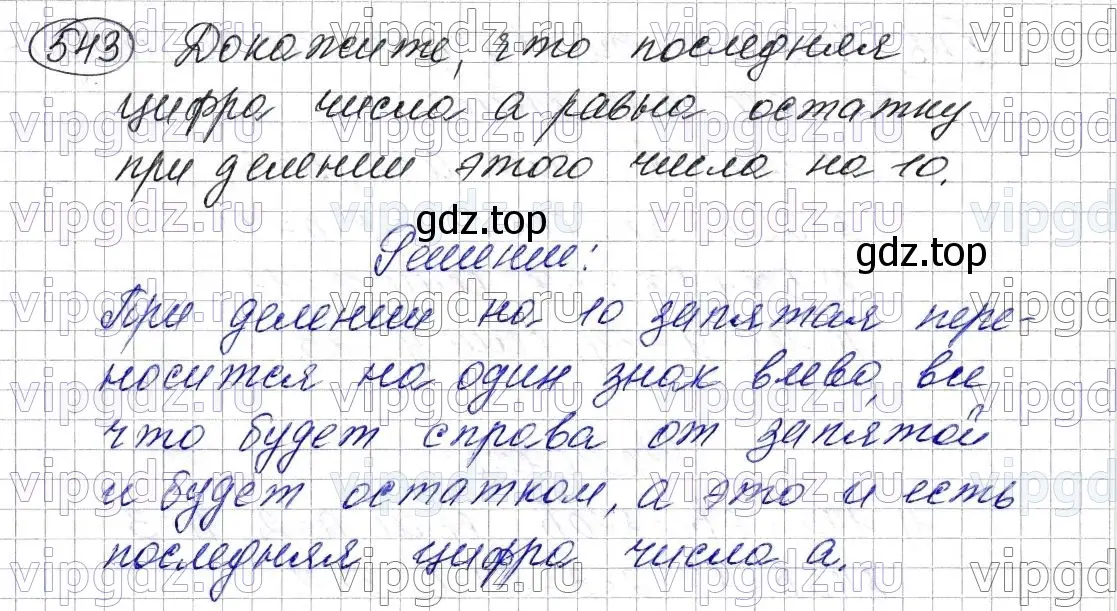 543 Докажите, что последняя
цифра числа а равна остатку
при делении этого числа на 10.
gdz.top
Решение:
gdz.top
При делении на 10 запятая пере-
носится на один знак влево, все
что будет справа от запятой
и будет остатком, а это и есть
последняя цифра числа а.
vipgdz.ru